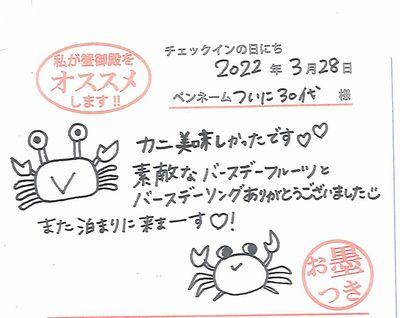 私が蟹御殿を
オススメ
します!!
チェックインの日にち
2022年3月28日
ペンネーム ついに30代 様
カニ美味しかったです♡♡
素敵なバースデーフルーツと
バースデーソングありがとうございました☺
また泊まりに来まーす♡!
お墨
つき